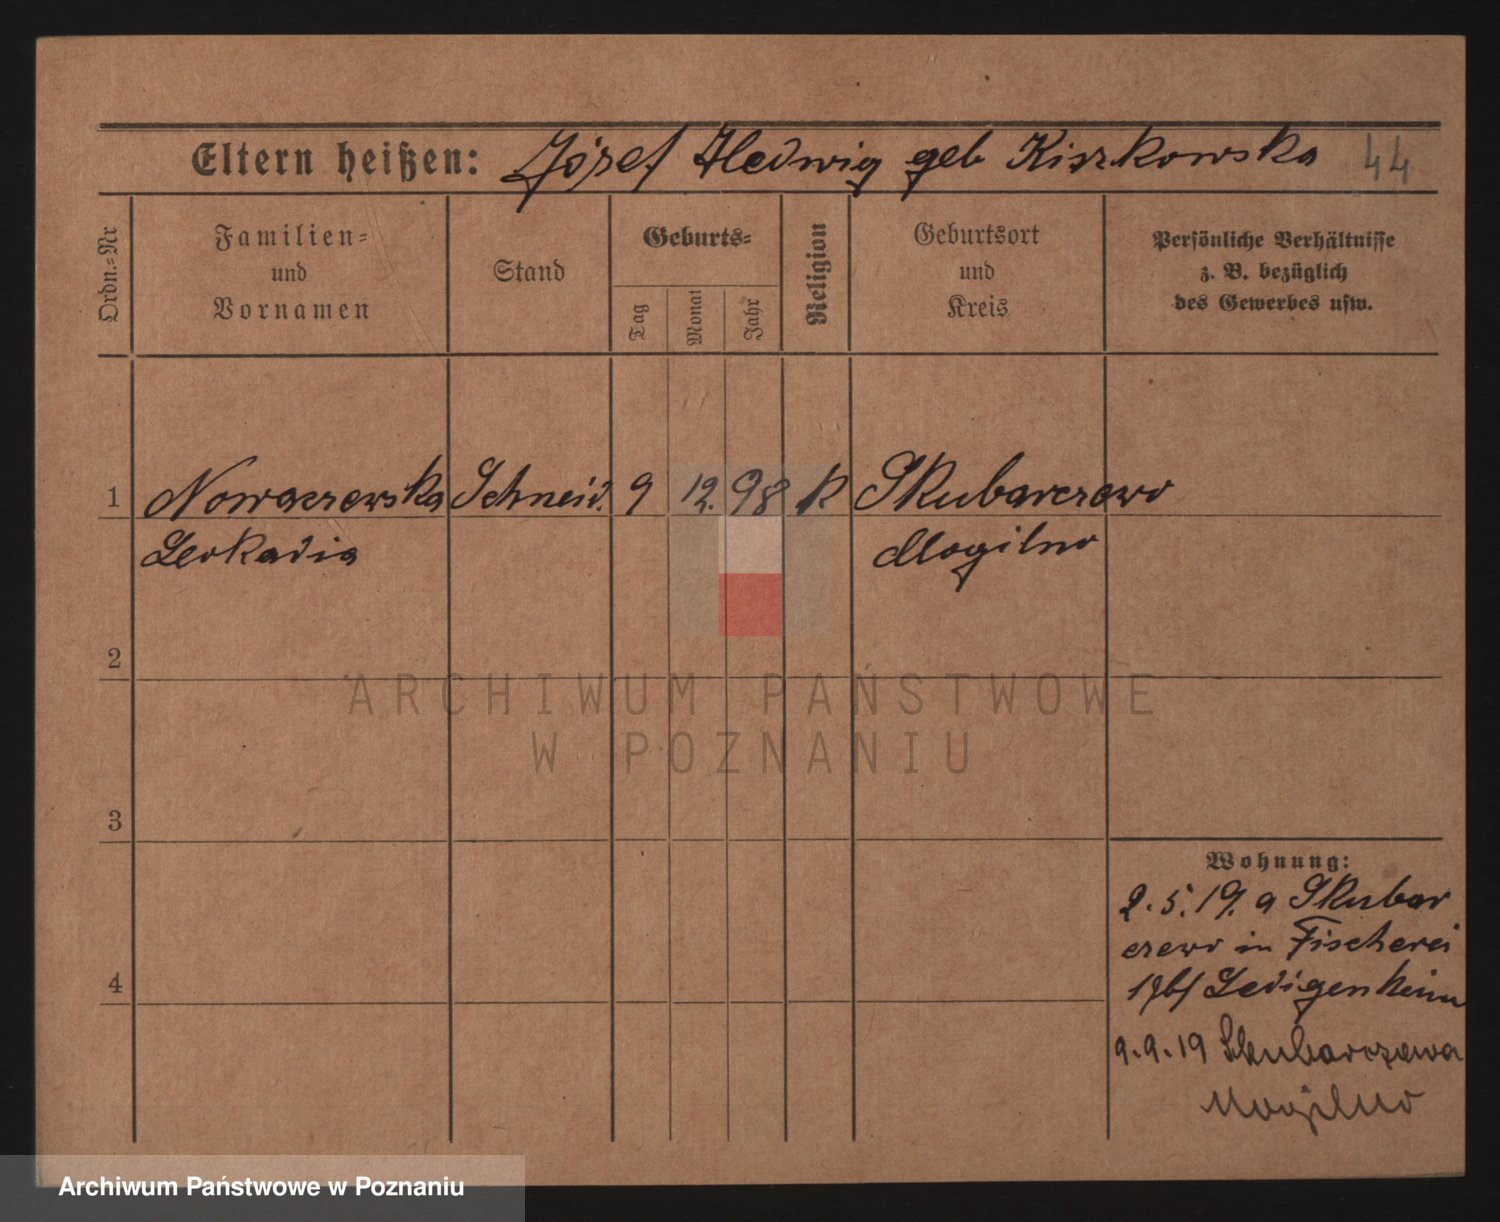 Eltern heißen: Józef Hedwig geb Kiszkowska 44
Ordn.=Nr
Familien=
und
Vornamen
Stand
Geburts=
Tag
Monat
Jahr
Religion
Geburtsort
und
Kreis
Persönliche Verhältnisse
z. B. bezüglich
des Gewerbes usw.
1 Nowaczewska Schneid. 9 12. 98 k Skubarczewo
Leokadia Mogilno
2
ARCHIWUM PAŃSTWOWE
W POZNANIU
3
Wohnung:
2.5.19. a Skubar
czewo in Fischerei
Ledigenheim
4
9.9.19 Skubarczewa
Mogilno
Archiwum Państwowe w Poznaniu